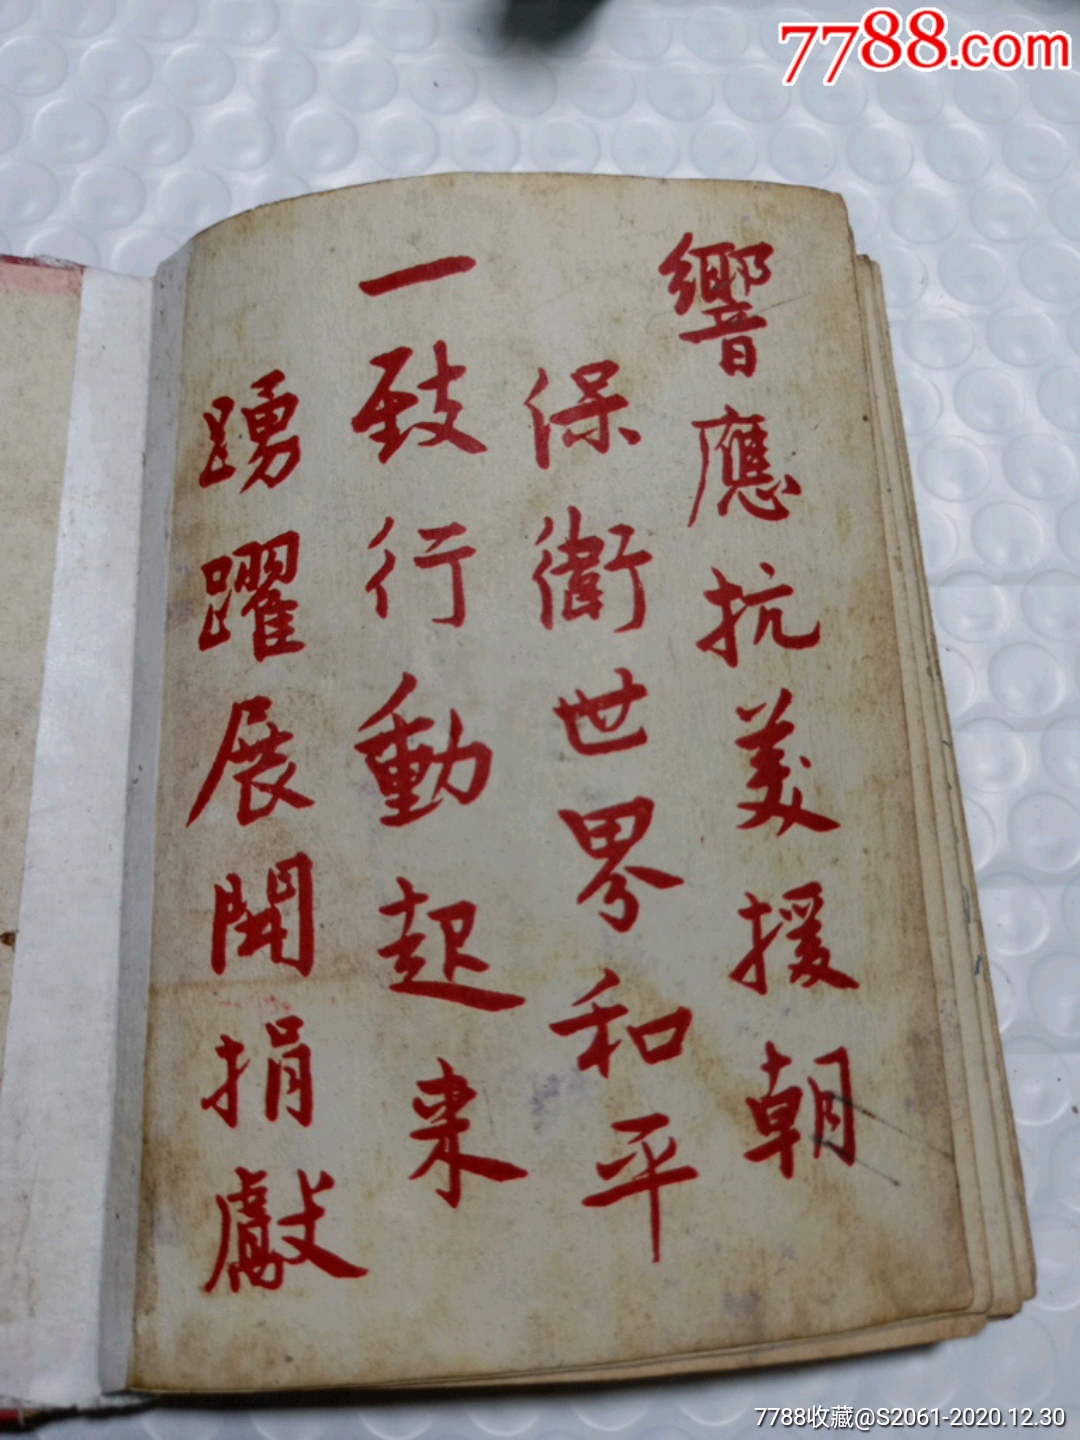 7788.com
響應抗美援朝
保衛世界和平
一致行動起来
踴躍展開捐獻
7788收藏@S2061-2020.12.30